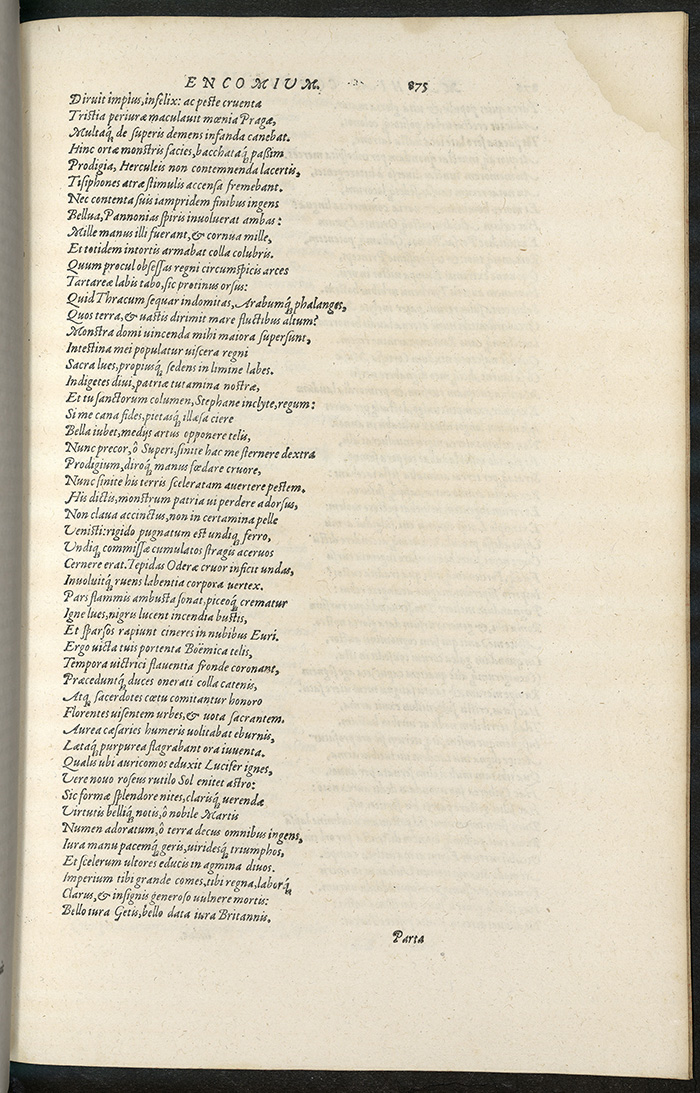 ENCOMIUM. 875
Diruit impius, infelix: ac peste cruenta
Tristia periuræ maculauit mœnia Pragæ,
Multaq́; de superis demens infanda canebat.
Hinc ortæ monstris facies, bacchataq́; paßim
Prodigia, Herculeis non contemnenda lacertis,
Tisiphones atræ stimulis accensa fremebant.
Nec contenta suis iampridem finibus ingens
Bellua, Pannonias spiris inuoluerat ambas:
Mille manus illi fuerant, & cornua mille,
Et totidem intortis armabat colla colubris.
Quum procul obsessas regni circumspicis arces
Tartareæ labis tabo, sic protinus orsus:
Quid Thracum sequar indomitas, Arabumq́; phalanges,
Quos terra, & uastis dirimit mare fluctibus altum?
Monstra domi uincenda mihi maiora supersunt,
Intestina mei populatur uiscera regni
Sacra lues, propiusq́; sedens in limine labes.
Indigetes diui, patriæ tutamina nostræ,
Et tu sanctorum columen, Stephane inclyte, regum:
Si me cana fides, pietasq́; illæsa ciere
Bella iubet, medijs artus opponere telis,
Nunc precor, ô Superi, sinite hac me sternere dextra
Prodigium, diroq́; manus fœdare cruore,
Nunc sinite his terris sceleratam auertere pestem.
His dictis, monstrum patria ui perdere adorsus,
Non claua accinctus, non in certamina pelle
Uenisti: rigido pugnatum est undiq; ferro,
Undiq; commissæ cumulatos stragis aceruos
Cernere erat. Tepidas Oderæ cruor inficit undas,
Inuoluitq́; ruens labentia corpora uertex.
Pars flammis ambusta sonat, piceoq́; crematur
Igne lues, nigris lucent incendia bustis,
Et sparsos rapiunt cineres in nubibus Euri.
Ergo uicta tuis portenta Boëmica telis,
Tempora uictrici flauentia fronde coronant,
Præceduntq́; duces onerati colla catenis,
Atq; sacerdotes cœtu comitantur honoro
Florentes uisentem urbes, & uota sacrantem.
Aurea cæsaries humeris uolitabat eburnis,
Lætaq́; purpurea flagrabant ora iuuenta.
Qualis ubi auricomos eduxit Lucifer ignes,
Uere nouo roseus rutilo Sol enitet astro:
Sic formæ splendore nites, clarisq́; uerendæ
Uirtutis belliq́; notis, ô nobile Martis
Numen adoratum, ô terra decus omnibus ingens,
Iura manu pacemq́; geris, uiridesq́; triumphos,
Et scelerum ultores educis in agmina diuos.
Imperium tibi grande comes, tibi regna, laborq́;
Clarus, & insignis generoso uulnere mortis:
Bello iura Getis, bello data iura Britannis.
Parta